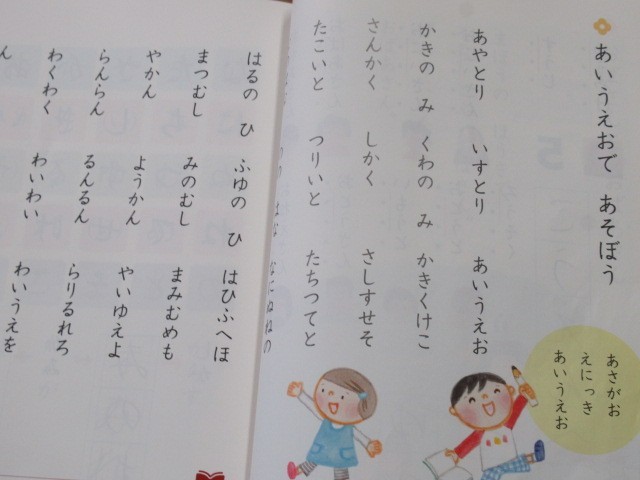 あいうえおで あそぼう
あやとり いすとり あいうえお
かきの み くわの み かきくけこ
さんかく しかく さしすせそ
たこいと つりいと たちつてと
なにぬねの
はるの ひ ふゆの ひ はひふへほ
まつむし みのむし まみむめも
やかん ようかん やいゆえよ
らんらん るんるん らりるれろ
わくわく わいわい わいうえを
ん
あさがお
えにっき
あいうえお